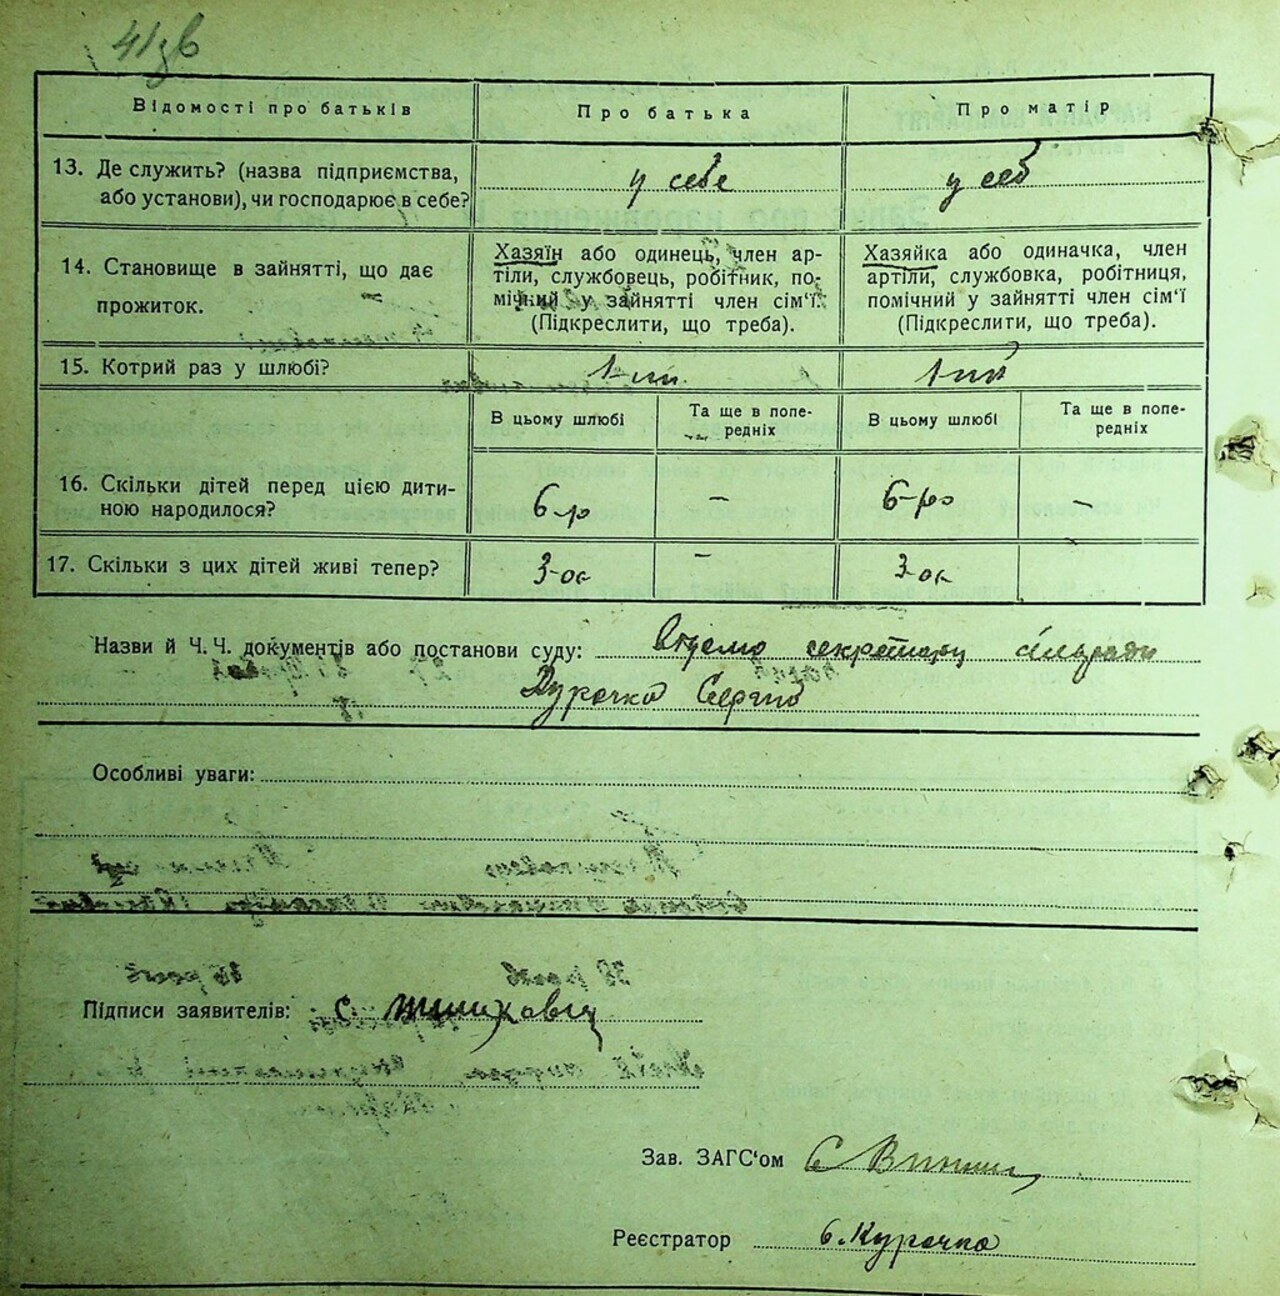 41зв
Відомості про батьків
Про батька
Про матір
13. Де служить? (назва підприємства,
або установи), чи господарює в себе?
у себе
у себ
14. Становище в зайнятті, що дає
прожиток.
Хазяїн або одинець, член ар-
тіли, службовець, робітник, по-
мічний у зайнятті член сім'ї.
(Підкреслити, що треба).
Хазяйка або одиначка, член
артіли, службовка, робітниця,
помічний у зайнятті член сім'ї
(Підкреслити, що треба).
15. Котрий раз у шлюбі?
1-ий
1-ий
В цьому шлюбі
Та ще в попе-
редніх
В цьому шлюбі
Та ще в попе-
редніх
16. Скільки дітей перед цією дити-
ною народилося?
6-ро
–
6-ро
–
17. Скільки з цих дітей живі тепер?
3-ок
–
3-ок
Назви й Ч. Ч. документів або постанови суду: секретарц сільради
Курочка Сергій
Особливі уваги:
Підписи заявителів: С.
Зав. ЗАГС'ом
Реєстратор Є. Курочка